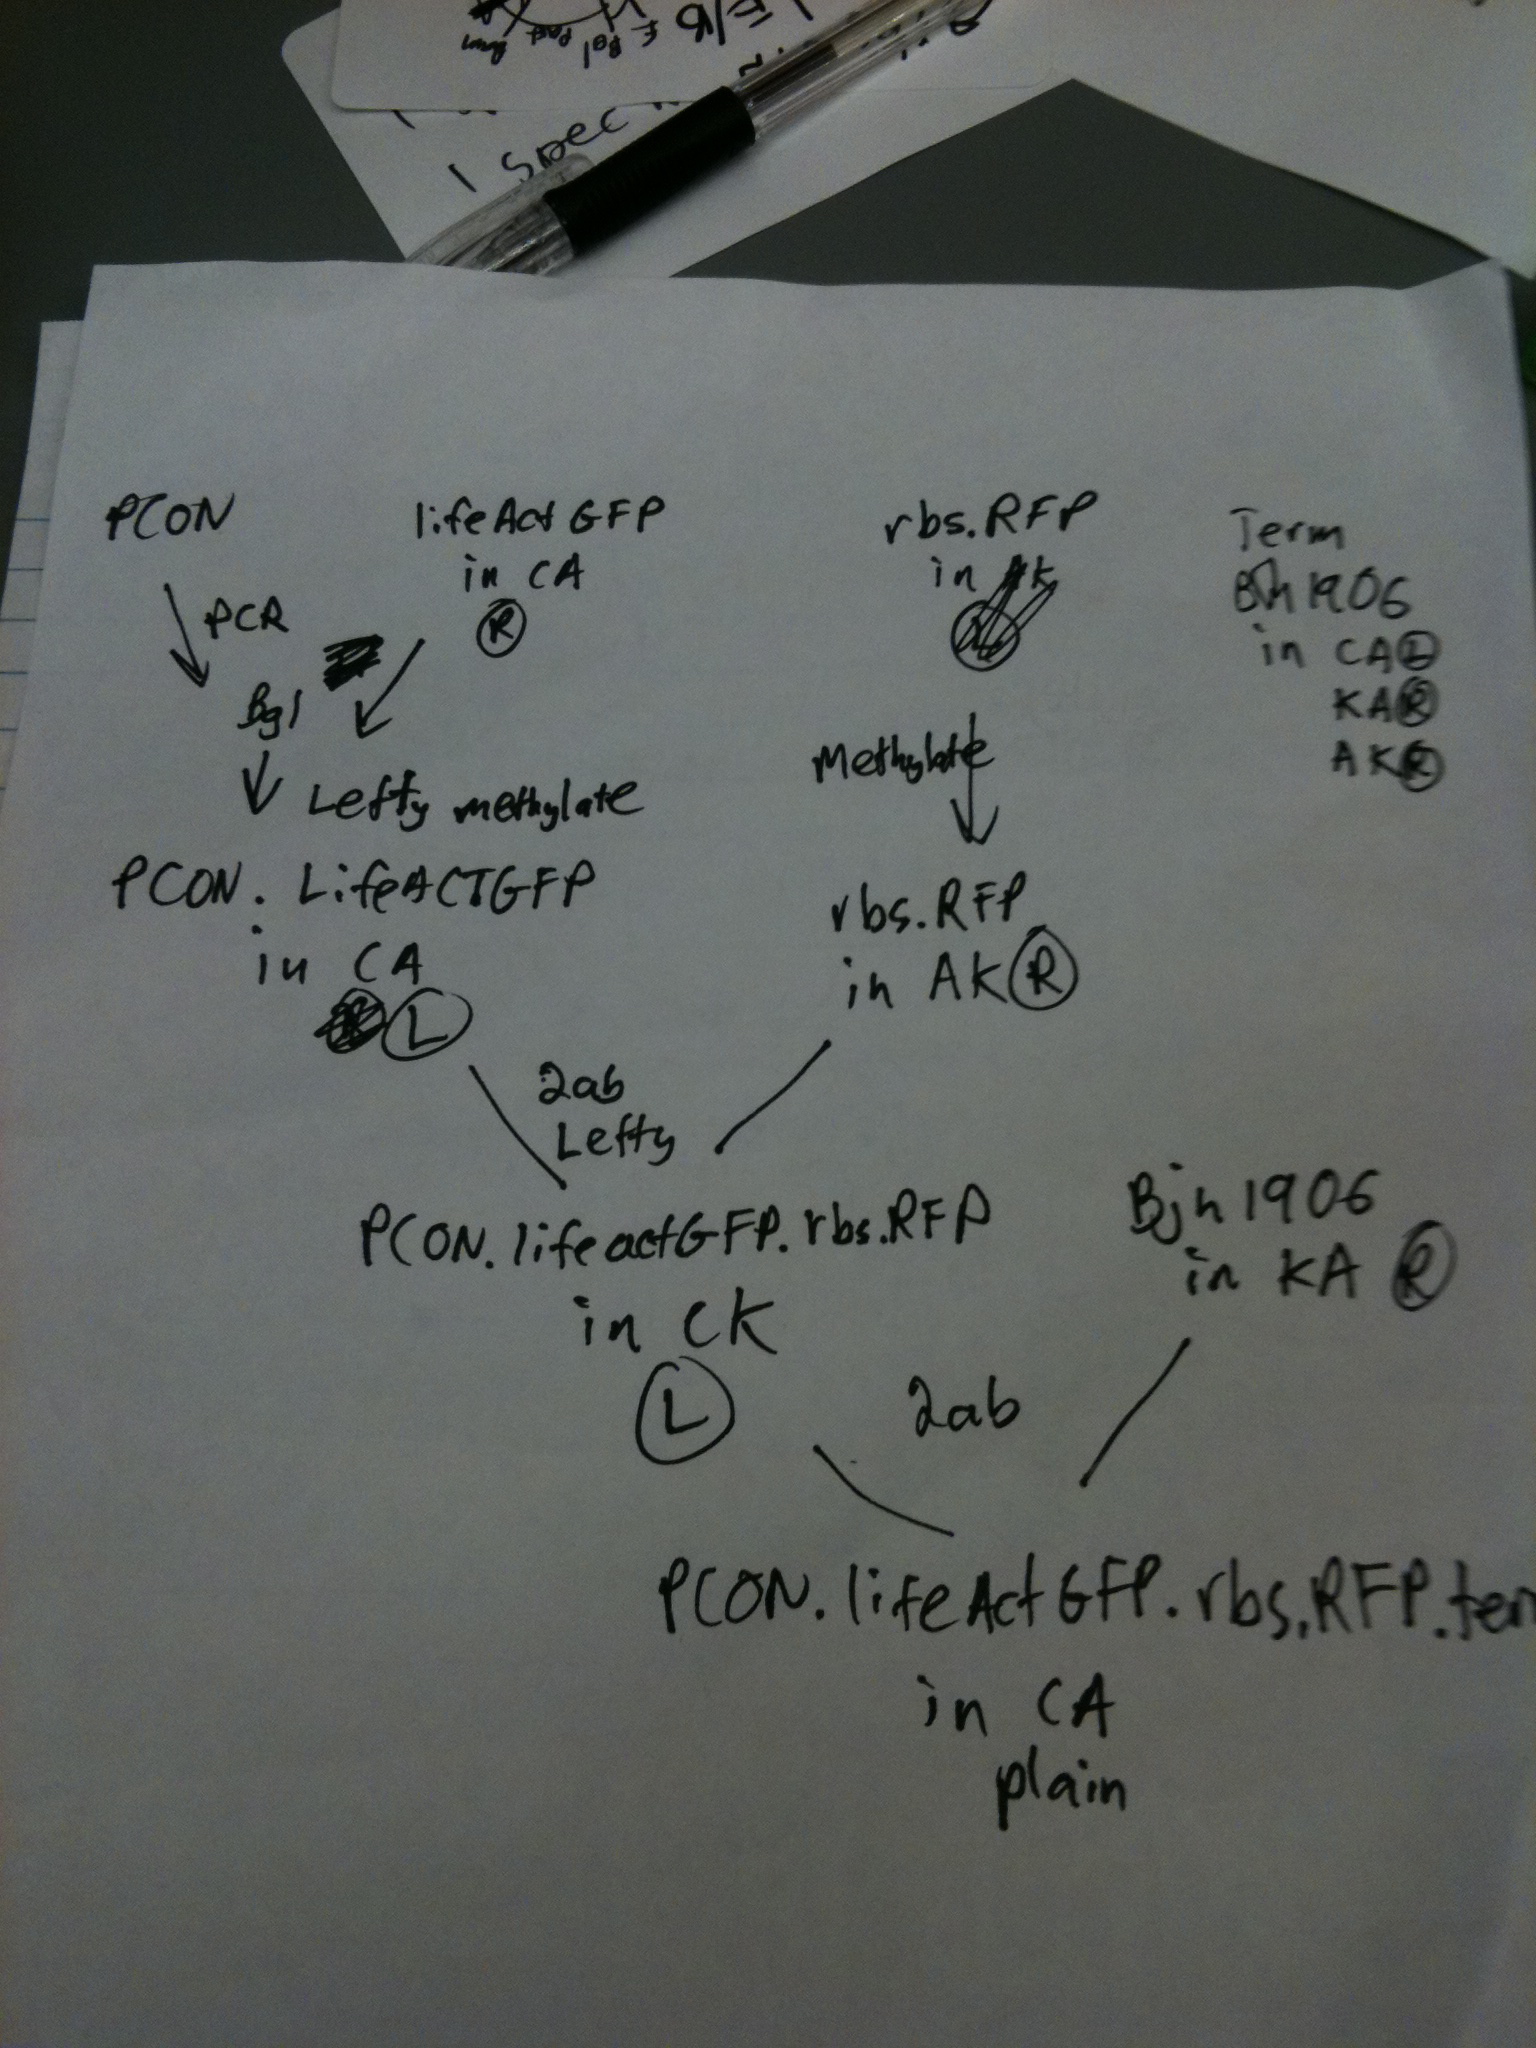 1 Spec
PCON
lifeAct GFP
in CA
R
PCR
Bgl
Lefty methylate
PCON. LifeACTGFP
in CA
L
rbs.RFP
in
Methylate
rbs.RFP
in AK R
Term
Bjh1906
in CA L
KA R
AK R
2ab
Lefty
PCON.lifeactGFP.rbs.RFP
in CK
L
Bjh1906
in KA R
2ab
PCON.lifeActGFP.rbs.RFP.ter
in CA
plain